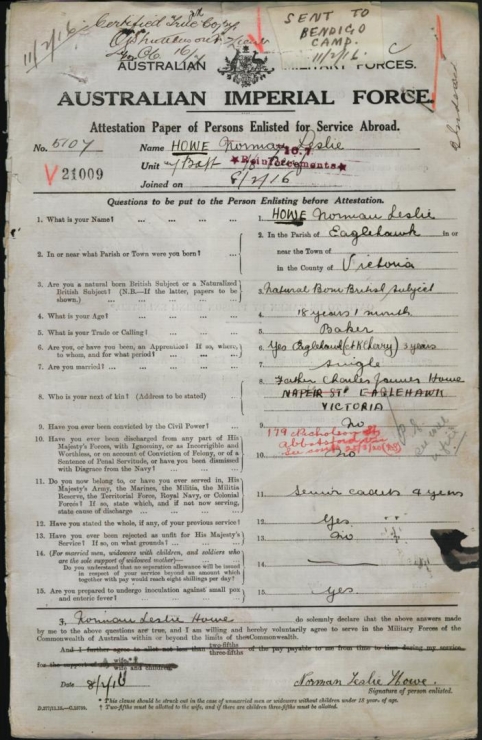 11/2/16
Certified True Copy
SENT TO
BENDIGO
CAMP.
11/2/16.
AUSTRALIAN MILITARY FORCES.
AUSTRALIAN IMPERIAL FORCE.
Attestation Paper of Persons Enlisted for Service Abroad.
No. 5107 Name HOWE Norman Leslie
V 21009 Unit 7 Batt 16.7
★Reinforcements★
Joined on 8/2/16
Questions to be put to the Person Enlisting before Attestation.
1. What is your Name? ... ... ... 1. HOWE Norman Leslie
2. In or near what Parish or Town were you born? ... 2. In the Parish of Eaglehawk in or
near the Town of
in the County of Victoria
3. Are you a natural born British Subject or a Naturalised
British Subject? (N.B.—If the latter, papers to be
shown.) ... 3. Natural Born British Subject
4. What is your Age? ... 4. 18 years 1 month
5. What is your Trade or Calling? ... 5. Baker
6. Are you, or have you been, an Apprentice? If so, where,
to whom, and for what period? ... 6. Yes Eaglehawk (A K Cherry) 3 years
7. Are you married? ... 7. Single
8. Who is your next of kin? (Address to be stated) 8. Father Charles James Howe
NAPIER ST EAGLEHAWK
VICTORIA
9. Have you ever been convicted by the Civil Power? ... 9. No
179 Nicholson St
Abbotsford
10. Have you ever been discharged from any part of His
Majesty's Forces, with Ignominy, or as Incorrigible and
Worthless, or on account of Conviction of Felony, or of a
Sentence of Penal Servitude, or have you been dismissed
with Disgrace from the Navy? ... 10. no
11. Do you now belong to, or have you ever served in, His
Majesty's Army, the Marines, the Militia, the Militia
Reserve, the Territorial Force, Royal Navy, or Colonial
Forces? If so, state which, and if not now serving,
state cause of discharge ... 11. Senior cadets 4 years
12. Have you stated the whole, if any, of your previous service? 12. Yes
13. Have you ever been rejected as unfit for His Majesty's
Service? If so, on what grounds? ... 13. No
14. (For married men, widowers with children, and soldiers who
are the sole support of widowed mother)—
Do you understand that no separation allowance will be issued
in respect of your service beyond an amount which
together with pay would reach eight shillings per day? 14.
15. Are you prepared to undergo inoculation against small pox
and enteric fever? ... 15. Yes
I, Norman Leslie Howe do solemnly declare that the above answers made
by me to the above questions are true, and I am willing and hereby voluntarily agree to serve in the Military Forces of the
Commonwealth of Australia within or beyond the limits of the Commonwealth.
And I further agree to allot not less than two-fifths
three-fifths of the pay payable to me from time to time during my service
for the support of my wife
wife and children.
Date 8/2/16 Norman Leslie Howe.
Signature of person enlisted.
* This clause should be struck out in the case of unmarried men or widowers without children under 18 years of age.
† Two-fifths must be allotted to the wife, and if there are children three-fifths must be allotted.